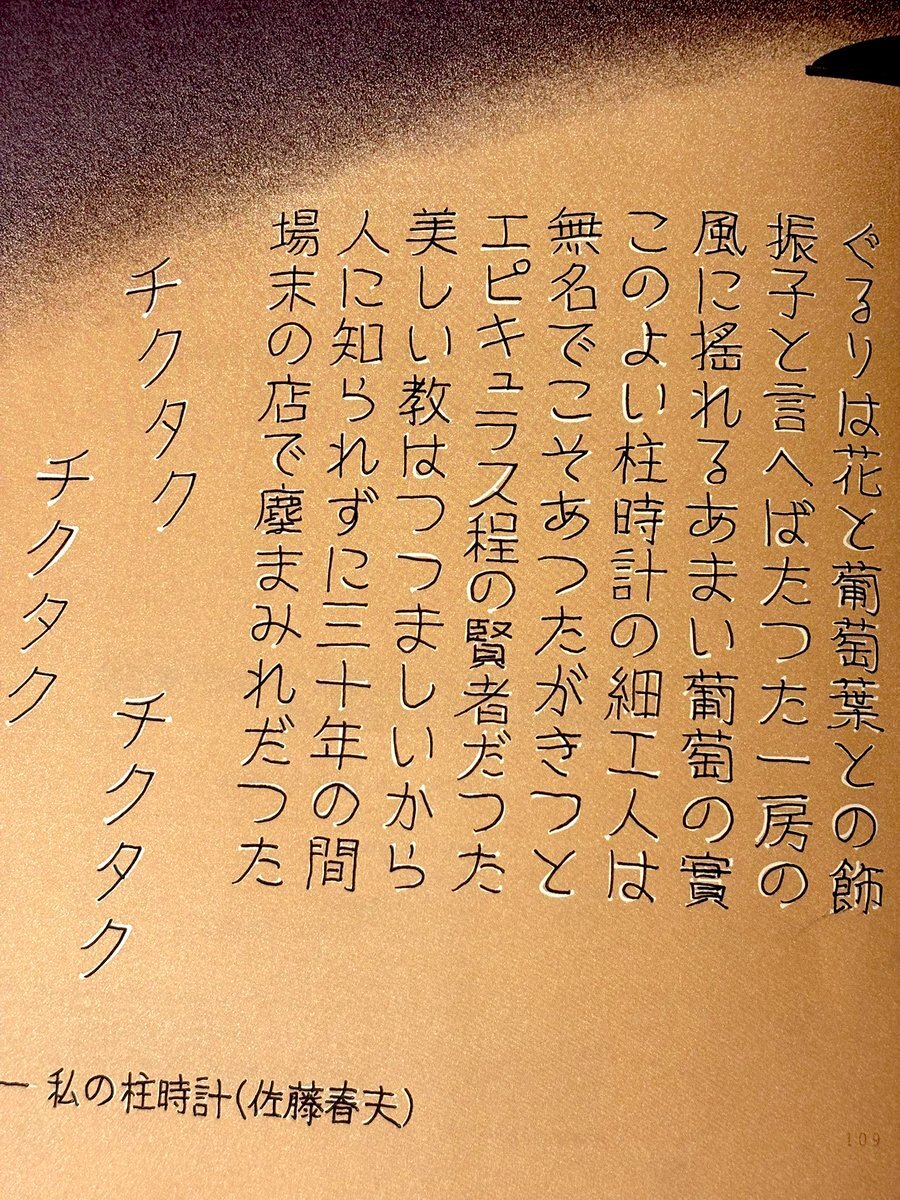 ぐるりは花と葡萄葉との飾
振子と言へばたつた一房の
風に搖れるあまい葡萄の實
このよい柱時計の細工人は
無名でこそあつたがきつと
エピキュラス程の賢者だつた
美しい教はつつましいから
人に知られずに三十年の間
場末の店で塵まみれだつた
チクタク
チクタク
チクタク
― 私の柱時計(佐藤春夫)
109